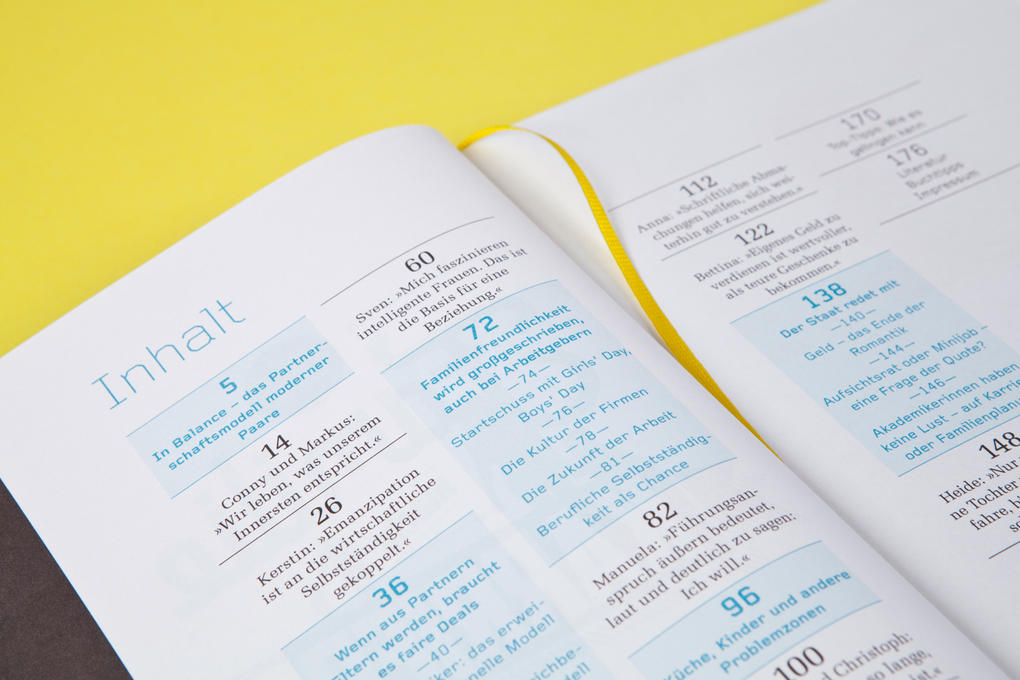 Inhalt
5
In Balance – das Partner-
schaftsmodell moderner
Paare
14
Conny und Markus:
»Wir leben, was unserem
Innersten entspricht.«
26
Kerstin: »Emanzipation
ist an die wirtschaftliche
Selbstständigkeit
gekoppelt.«
36
Wenn aus Partnern
Eltern werden, braucht
es faire Deals
—40—
das erwei-
Modell
60
Sven: »Mich faszinieren
intelligente Frauen. Das ist
die Basis für eine
Beziehung.«
72
Familienfreundlichkeit
wird großgeschrieben,
auch bei Arbeitgebern
—74—
Startschuss mit Girls' Day,
Boys' Day
—76—
Die Kultur der Firmen
—78—
Die Zukunft der Arbeit
—81—
Berufliche Selbstständig-
keit als Chance
82
Manuela: »Führungsan-
spruch äußern bedeutet,
laut und deutlich zu sagen:
Ich will.«
96
Küche, Kinder und andere
Problemzonen
100
Christoph:
so lange,
ist.«
112
Anna: »Schriftliche Abma-
chungen helfen, sich wei-
terhin gut zu verstehen.«
122
Bettina: »Eigenes Geld zu
verdienen ist wertvoller,
als teure Geschenke zu
bekommen.«
138
Der Staat redet mit
—140—
Geld – das Ende der
Romantik
—144—
Aufsichtsrat oder Minijob –
eine Frage der Quote?
—146—
Akademikerinnen haben
keine Lust – auf Karrie
oder Familienplanu
148
Heide: »Nur
ne Tochter
fahre,
170
Top-Tipps: Wie es
gelingen kann
176
Literatur
Buchtipps
Impressum